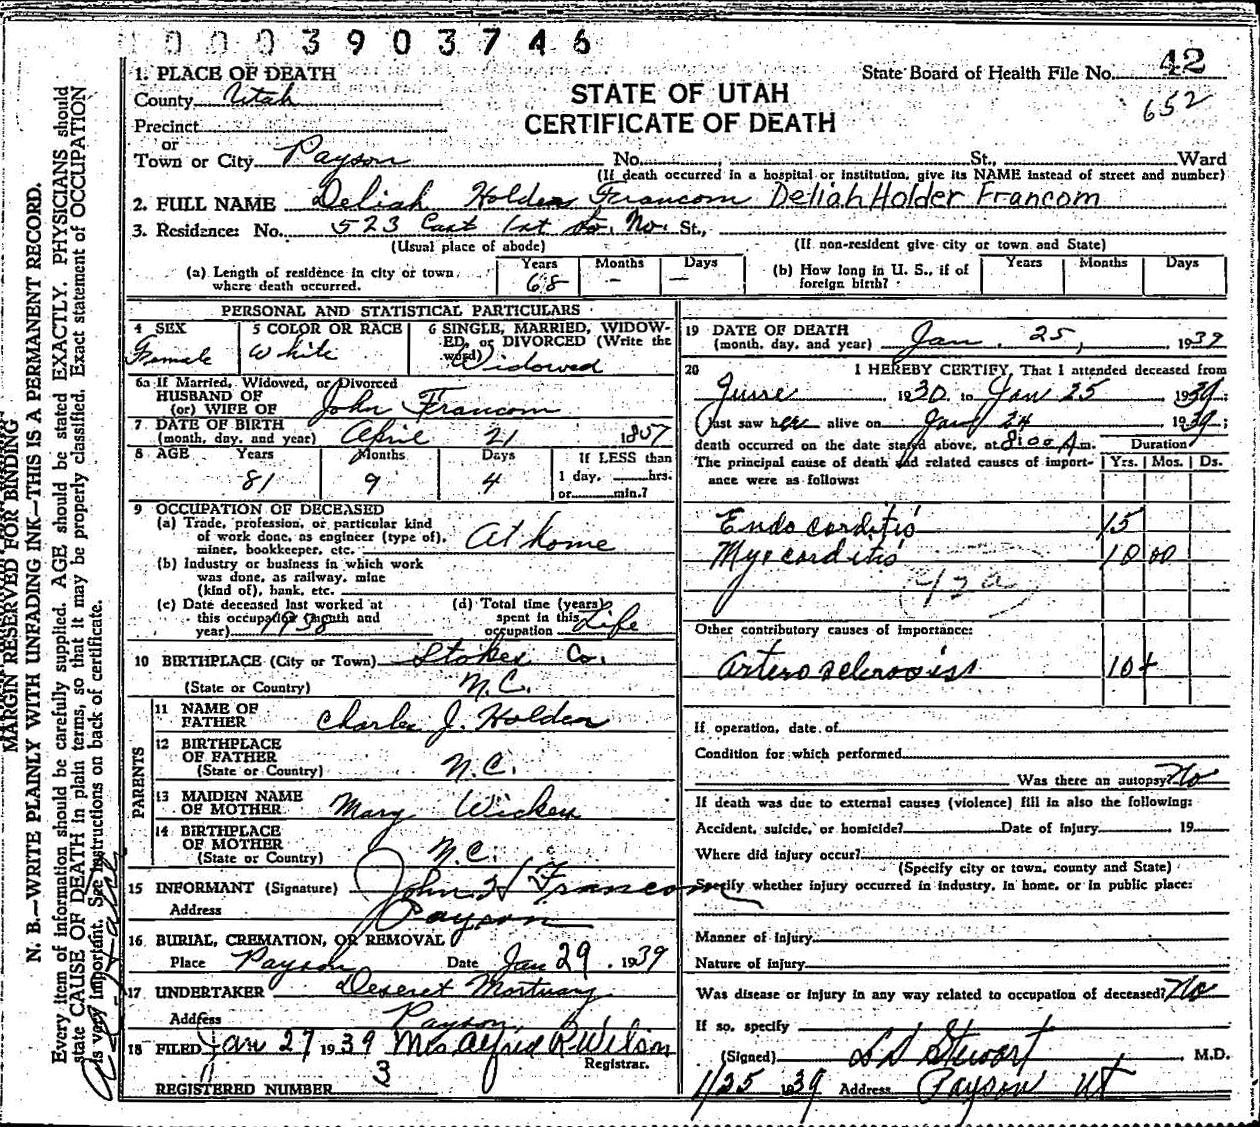 0003903746
State Board of Health File No. 42
652
STATE OF UTAH
CERTIFICATE OF DEATH
1. PLACE OF DEATH
County Utah
Precinct
or
Town or City Payson No. St., Ward
(If death occurred in a hospital or institution, give its NAME instead of street and number)
2. FULL NAME Deliah Holder Francom Deliah Holder Francom
3. Residence: No. 523 East 1st So. No. St.,
(Usual place of abode) (If non-resident give city or town and State)
(a) Length of residence in city or town where death occurred. Years 68 Months - Days -
(b) How long in U. S., if of foreign birth? Years Months Days
PERSONAL AND STATISTICAL PARTICULARS
4 SEX Female
5 COLOR OR RACE White
6 SINGLE, MARRIED, WIDOWED, or DIVORCED (Write the word) Widowed
6a If Married, Widowed, or Divorced
HUSBAND OF
(or) WIFE OF John Francom
7 DATE OF BIRTH
(month, day, and year) April 21 1857
8 AGE Years 81 Months 9 Days 4 If LESS than 1 day, hrs. or min.?
9 OCCUPATION OF DECEASED
(a) Trade, profession, or particular kind
of work done, as engineer (type of),
miner, bookkeeper, etc. At home
(b) Industry or business in which work
was done, as railway, mine
(kind of), bank, etc.
(c) Date deceased last worked at
this occupation (month and
year) 1938
(d) Total time (years)
spent in this
occupation Life
10 BIRTHPLACE (City or Town) Stokes Co.
(State or Country) N.C.
PARENTS
11 NAME OF
FATHER Charles J. Holder
12 BIRTHPLACE
OF FATHER
(State or Country) N.C.
13 MAIDEN NAME
OF MOTHER Mary Wickes
14 BIRTHPLACE
OF MOTHER
(State or Country) N.C.
15 INFORMANT (Signature) John H Francom
Address Payson
16 BURIAL, CREMATION, OR REMOVAL
Place Payson Date Jan 29, 1939
17 UNDERTAKER Deseret Mortuary
Address Payson,
18 FILED Jan 27 1939 Mrs Alfred R Wilson
Registrar.
REGISTERED NUMBER 3
19 DATE OF DEATH
(month, day, and year) Jan. 25, 1939
20 I HEREBY CERTIFY, That I attended deceased from
June 1930 to Jan 25 1939;
I last saw her alive on Jan 24 1939;
death occurred on the date stated above, at 8:00 A.m.
The principal cause of death and related causes of importance were as follows:
Duration
Yrs. Mos. Ds.
Endocorditis 15
Myocorditis 10 00
Other contributory causes of importance:
Arterosclerosiss 10+
If operation, date of
Condition for which performed
Was there an autopsy No
If death was due to external causes (violence) fill in also the following:
Accident, suicide, or homicide? Date of injury , 19
Where did injury occur?
(Specify city or town, county and State)
Specify whether injury occurred in industry, in home, or in public place:
Manner of injury
Nature of injury
Was disease or injury in any way related to occupation of deceased? No
If so, specify
(Signed) L D Stewart M.D.
1/25 1939 Address Payson Ut
MARGIN RESERVED FOR BINDING
N. B.—WRITE PLAINLY WITH UNFADING INK—THIS IS A PERMANENT RECORD.
Every item of information should be carefully supplied. AGE should be stated EXACTLY. PHYSICIANS should
state CAUSE OF DEATH in plain terms, so that it may be properly classified. Exact statement of OCCUPATION
is very important. See instructions on back of certificate.